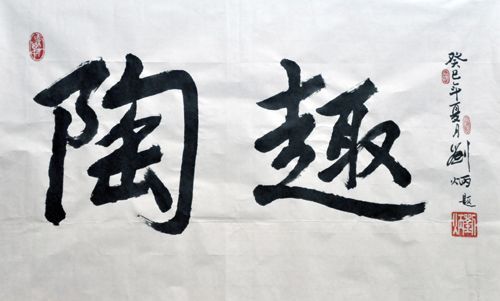 陶趣
癸巳年夏月劉炳題